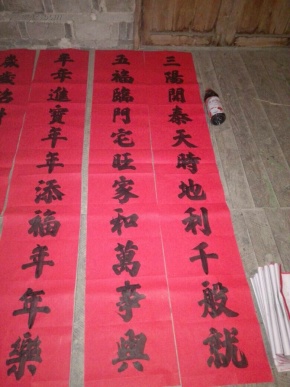 三陽開泰天時地利千般就
五福臨門宅旺家和萬事興
年年進寶年年添福年年樂